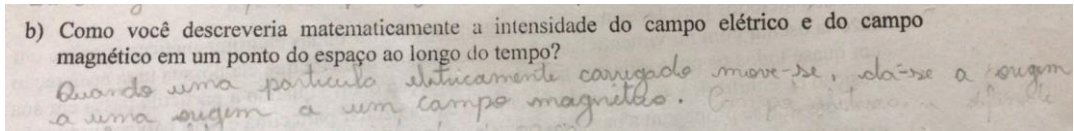 b) Como você descreveria matematicamente a intensidade do campo elétrico e do campo
magnético em um ponto do espaço ao longo do tempo?
Quando uma particula eletricamente carregada move-se, dá-se a origem
a uma origem a um campo magnético.